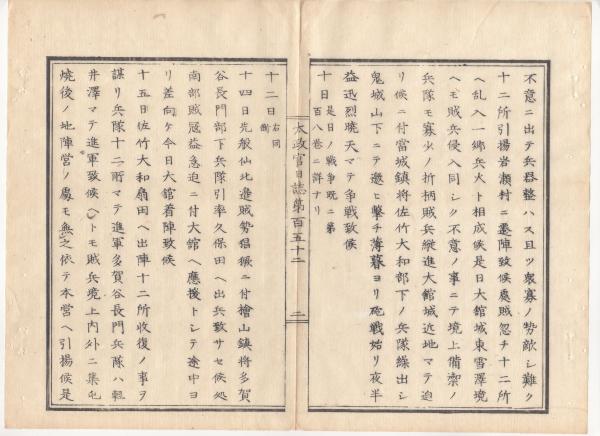 不意ニ出テ兵器整ハス且ツ衆寡ノ勢敵シ難ク
十二所引揚岩瀬村ニ塁陣致候處賊忽チ十二所
ヘ乱入一郷兵火ト相成候是日大館城東雪澤境
ヘモ賊兵侵入同シク不意ノ事ニテ境上備禦ノ
兵隊モ寡少ノ折柄賊兵縦進大館城近地マテ迫
リ候ニ付宮城鎮将佐竹大和部下ノ兵隊繰出シ
鬼城山下ニテ邀ヒ撃チ薄暮ヨリ砲戦始リ夜半
益迅烈暁天マテ争戦致候
十日 是日ノ戦争既ニ第百八巻ニ詳ナリ
太政官日誌第百五十二
二
十二日 右同断
十四日先般仙北進賊勢猖獗ニ付檜山鎮将多賀
谷長門部下兵隊引率久保田ヘ出兵致サセ候処
南部賊寇益急迫ニ付大館ヘ應援トシテ途中ヨ
リ差向ケ今日大館着陣致候
十五日佐竹大和扇田ヘ出陣十二所收復ノ事ヲ
謀リ兵隊十二所マテ進軍多賀谷長門兵隊ハ軽
井澤マテ進軍致候ヘトモ賊兵境上内外ニ集屯
焼後ノ地陣営ノ處モ無之依テ本営ヘ引揚候是